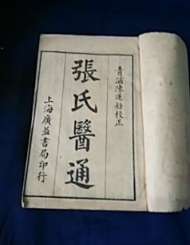 青浦陳蓮舫校正
張氏醫通
上海廣益書局印行